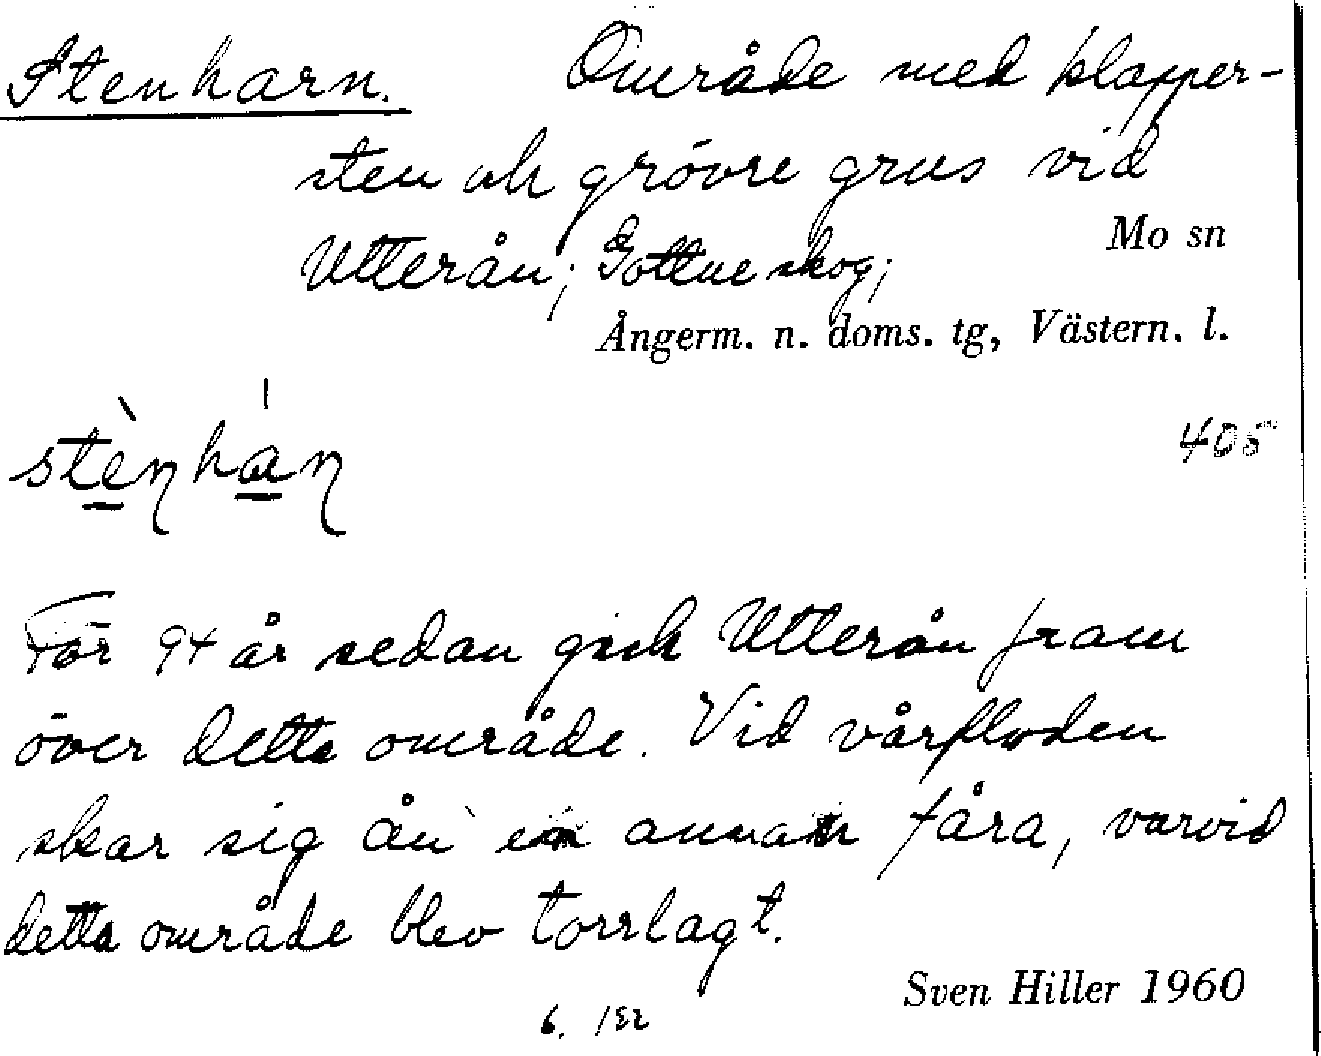 Stenharn. Område med klapper-
sten och grövre grus vid
Utterån; Gottne skog;
Mo sn
Ångerm. n. doms. tg, Västern. l.
405
stèn hán
För 94 år sedan gick Utterån fram
över detta område. Vid vårfloden
skar sig ån en annan fåra, varvid
detta område blev torrlagt.
Sven Hiller 1960
6.